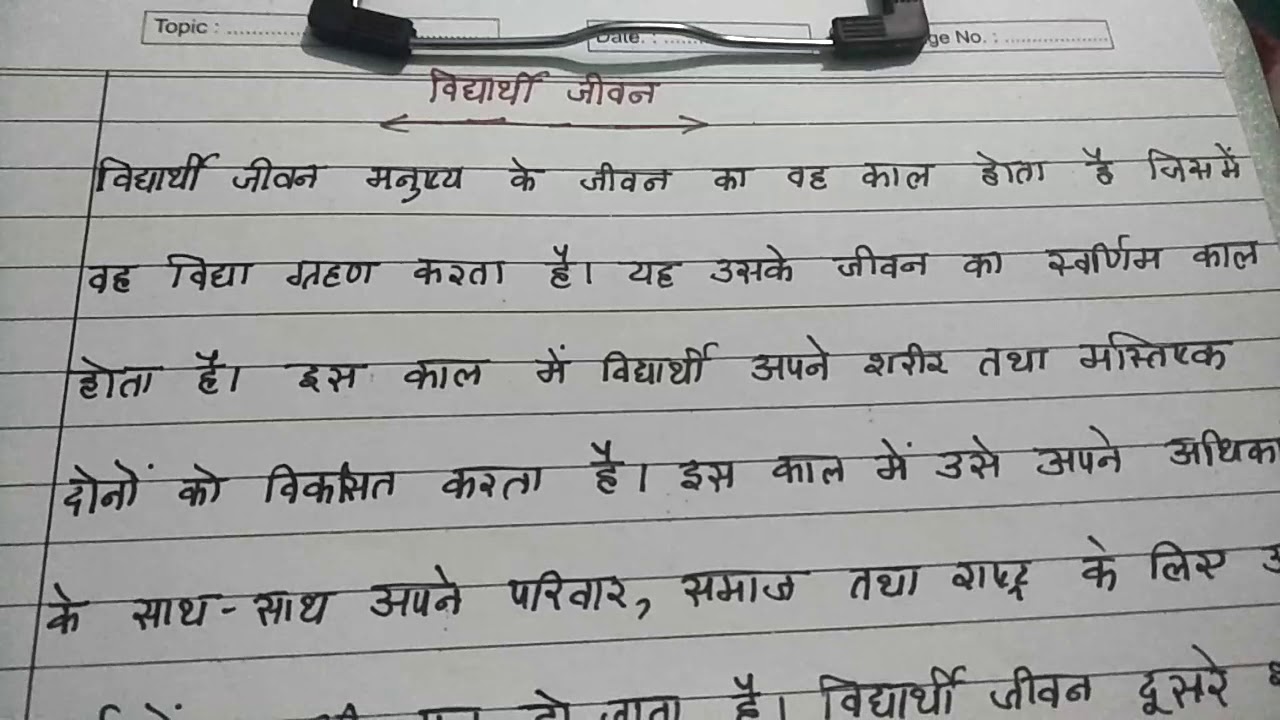 Topic :
Date. :
ge No. :
विद्यार्थी जीवन
विद्यार्थी जीवन मनुष्य के जीवन का वह काल होता है जिसमें
वह विद्या ग्रहण करता है। यह उसके जीवन का स्वर्णिम काल
होता है। इस काल में विद्यार्थी अपने शरीर तथा मस्तिष्क
दोनों को विकसित करता है। इस काल में उसे अपने अधिका
के साथ-साथ अपने परिवार, समाज तथा राष्ट्र के लिए
जाता है। विद्यार्थी जीवन दूसरे